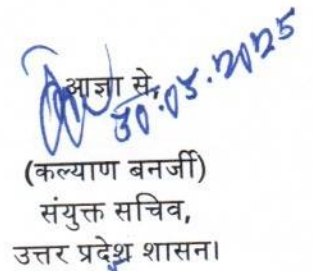 आज्ञा से,
30.05.2025
(कल्याण बनर्जी)
संयुक्त सचिव,
उत्तर प्रदेश शासन।